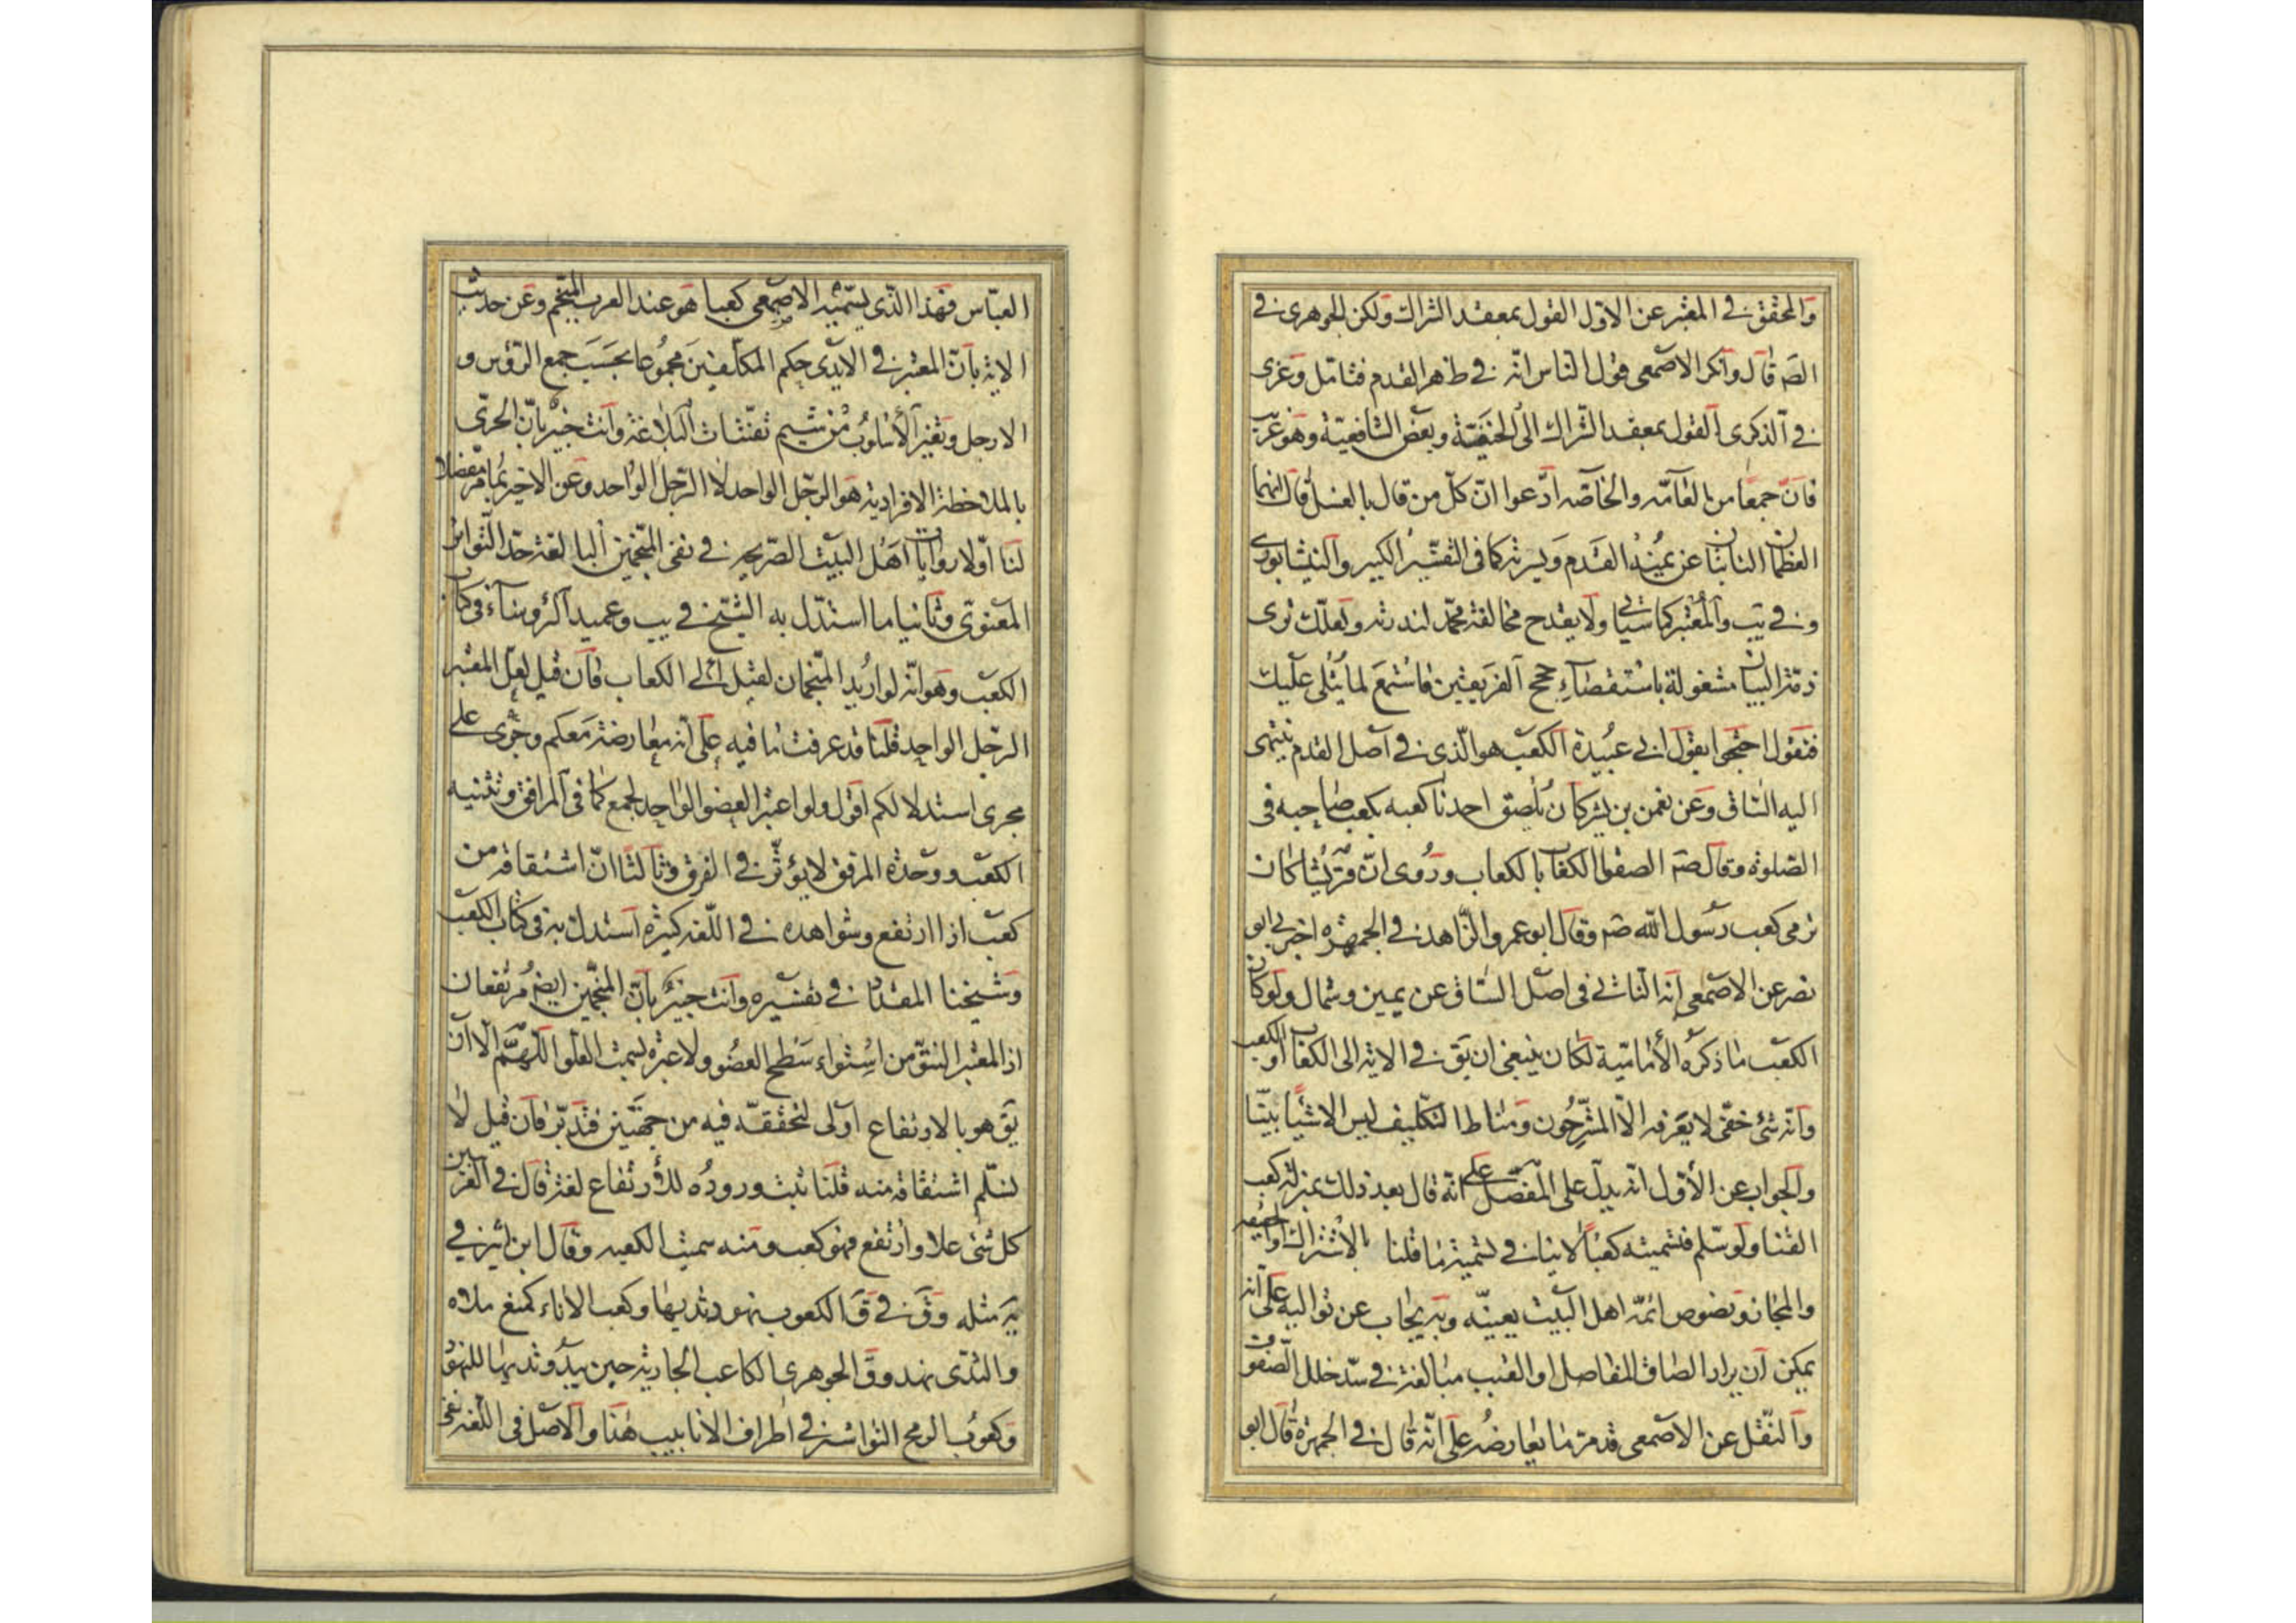 والمحقق في المعتبر عن الاول القول بمعقد الشراك ولكن الجوهري في
الصۃ قال وانكر الاصمعي قول الناس انه في ظهر القدم فتامل وعزى
في الذكرى القول بمعقد الشراك الى الحنفية وبعض الشافعية وهو غريب
فان جمعا من العامه والخاصه ادعوا ان كل من قال بالغسل قال انهما
العظمان الناتئان عن يمنة القدم ويسرته كما في التفسير الكبير والنيشابوري
وفي يب والمعتبر كما سياتي ولا يقدح مخالفة محمد لندرته ولعلك ترى
ذمة البيان مشغولة باستقصاء حجج الفريقين فاستمع لما يتلى عليك
فنقول احتجوا بقول ابي عبيدة الكعب هو الذي في اصل القدم ينتهى
اليه الساق وعن نعمن بن بشر كان يلصق احدنا كعبه بكعب صاحبه في
الصلوة وقال صۃ الصقوا الكعاب بالكعاب وروى ان قريشا كان
ترمى كعب رسول الله صۃ وقال ابو عمرو الزاهد في الجمهرة اخبرني ابو
نصر عن الاصمعي انه الناتي في اصل الساق عن يمين وشمال ولو كان
الكعب ما ذكره الأمامية لكان ينبغي ان يق في الاية الى الكعاب او الكعب
وانه شئ خفى لا يعرفه الا المشرحون ومناط التكليف ليس الا شيئا بينا
والجواب عن الأول انه يدل على المفصل على انه قال بعد ذلك بمنزلة كعب
القنا ولو سلم فتسميته كعبا لا ينافي تسمية ما قلنا بالاشتراك او الحقيقه
والمجاز ونصوص ائمة اهل البيت يعينه وبه يجاب عن تواليه على انه
يمكن ان يراد الصاق المفاصل او القبب مبالغة في سد خلل الصفوف
والنقل عن الاصمعي قد مر ما يعارضه على انه قال في الجمهرة قال ابو
العباس فهذا الذي يسميه الاصمعي كعبا هو عند العرب المنجم وعن حديث
الاية بان المعتبر في الايدى حكم المكلفين مجموعا بحسب جمع الرؤس و
الارجل وتغير الأسلوب من شيم تفننات البلاغة وانت خبير بان الحرى
بالملاحظة الافرادية هو الرجل الواحد لا الرجل الواحد وعن الاخير بما مر مفصلا
لنا اولا روايات اهل البيت الصريحه في نفى المنجمين البالغة حد التواتر
المعنوى وثانيا ما استدل به الشيخ في يب وعميد الرؤساء في كتاب
الكعب وهو انه لو اريد المنجمان لقيل الى الكعاب فان قيل لعل المعتبر
الرجل الواحد قلنا قد عرفت ما فيه على انه معارضة معكم وجرى على
مجرى استدلالكم اقول ولو اعتبر العضو الواحد لجمع كما في المرافق وتثنيه
الكعب ووحدة المرفق لا يؤثر في الفرق وثالثا ان اشتقاقه من
كعب اذا ارتفع وشواهده في اللغه كثيرة استدل به في كتاب الكعب
وشيخنا المقداد في تفسيره وانت خبير بان المنجمين ايضۃ مرتفعان
اذ المعتبر النتو من استواء سطح العضو ولا عبرة بسمت العلو اللهم الا ان
يق هو بالارتفاع اولى لتحققه فيه من جهتين فتدبر فان قيل لا
نسلم اشتقاقه منه قلنا ثبت وروده للأرتفاع لغة قال في الغريبين
كل شئ علا وارتفع فهو كعب ومنه سميت الكعبه وقال ابن اثير في
يۃ مثله وق في ق الكعوب نهود ثديها وكعب الاناء كمنع ملاه
والثدى نهد وق الجوهري الكاعب الجارية حين يبدو ثديها للنهو
وكعوب الرمح النواشز في اطراف الانابيب هنا والاصل في اللغه نفى